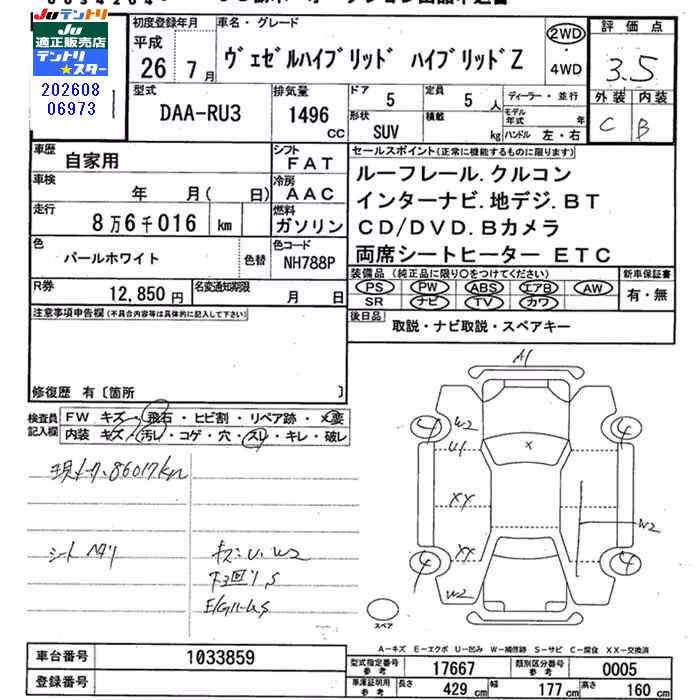 JUテントリ
JU
適正販売店
テントリ
★スター
202608
06973
初度登録年月
平成
26年7月
車名・グレード
ヴェゼルハイブリッド ハイブリッドZ
2WD
・
4WD
評価点
3.5
外装 内装
C B
型式
DAA-RU3
排気量
1496
CC
ドア
5
定員
5人
形状
SUV
積載
kg
ディーラー・並行
モデル年式 年
ハンドル 左・右
車歴
自家用
シフト
FAT
車検
年 月( 日)
冷房
AAC
走行
8万6千016 km
燃料
ガソリン
色
パールホワイト
色替
色コード
NH788P
R券
12,850円
名変通知期限
月 日
セールスポイント(正常に機能するものに限ります)
ルーフレール.クルコン
インターナビ.地デジ.BT
CD/DVD.Bカメラ
両席シートヒーター ETC
装備品(純正品に限り○をつけてください)
PS PW ABS エアB AW
SR ナビ TV カワ
新車保証書
有・無
後日品
取説・ナビ取説・スペアキー
注意事項申告欄(不具合内容等は具体的に記入して下さい)
修復歴 有〔箇所 〕
検査員
記入欄
FW キズ・飛石・ヒビ割・リペア跡・×変
内装 キズ・汚レ・コゲ・穴・スレ・キレ・破レ
86017km
シート ヘタリ
キズ・U、W2
下回りS
A1
4 W2 4
U1 ×
XX
W2
4 XX 4
W2
スペア
A-キズ E-エクボ U-凹み W-補修跡 S-サビ C-腐食 XX-交換済
車台番号
1033859
登録番号
型式指定番号
参考
17667
類別区分番号
参考
0005
車庫証明用
参考
長さ 429 cm 幅 177 cm 高さ 160 cm